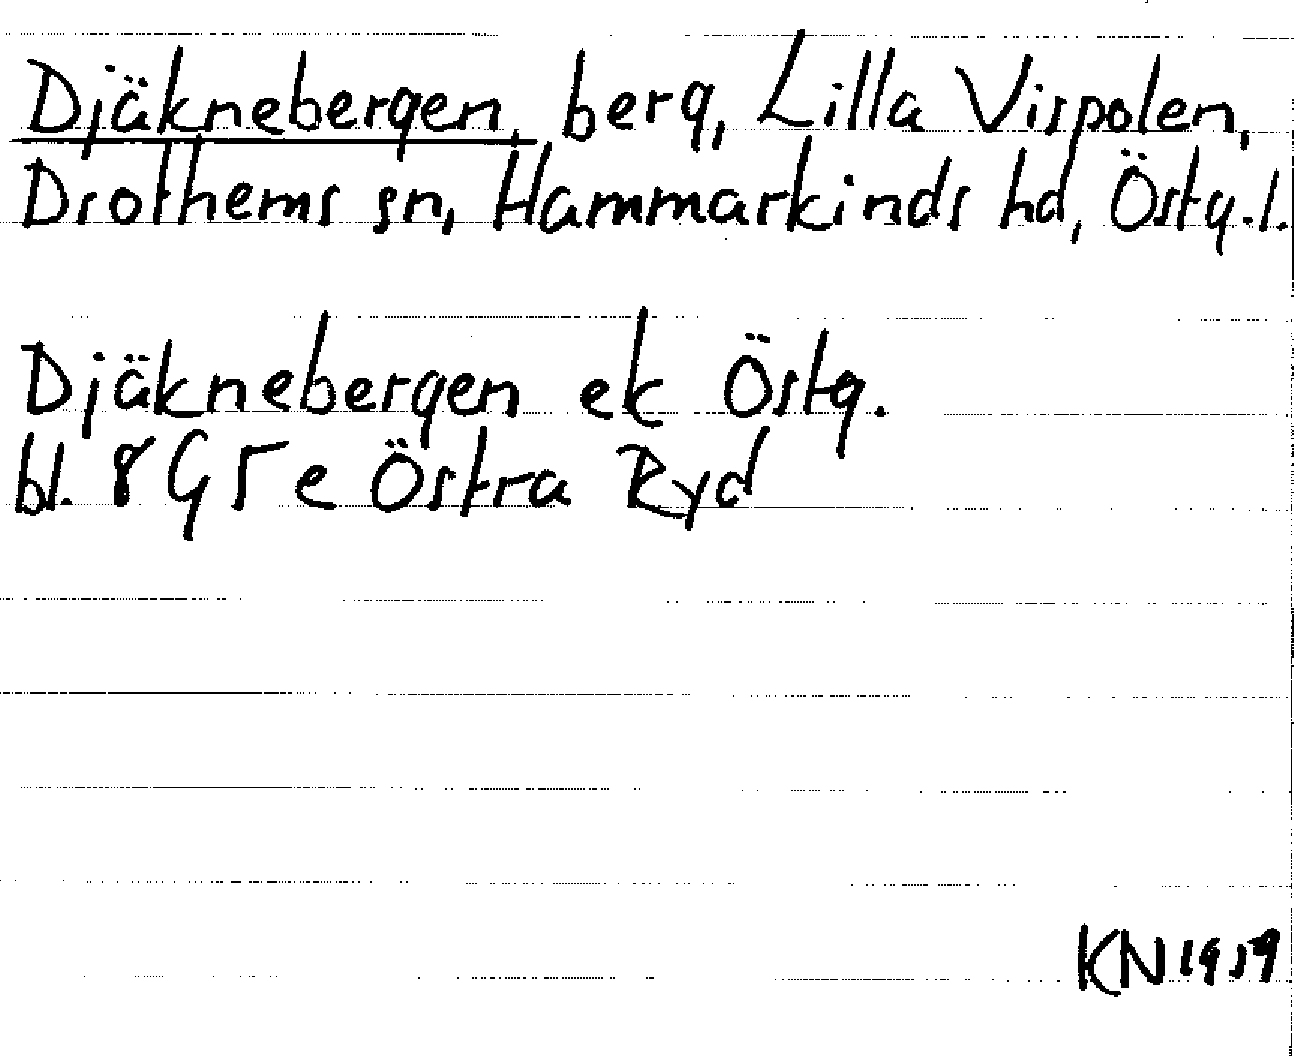 Djäknebergen, berg, Lilla Vispolen,
Drothems sn, Hammarkinds hd, Östg.l.
Djäknebergen ek Östg.
bl. 8G5e Östra Ryd
KN 1959